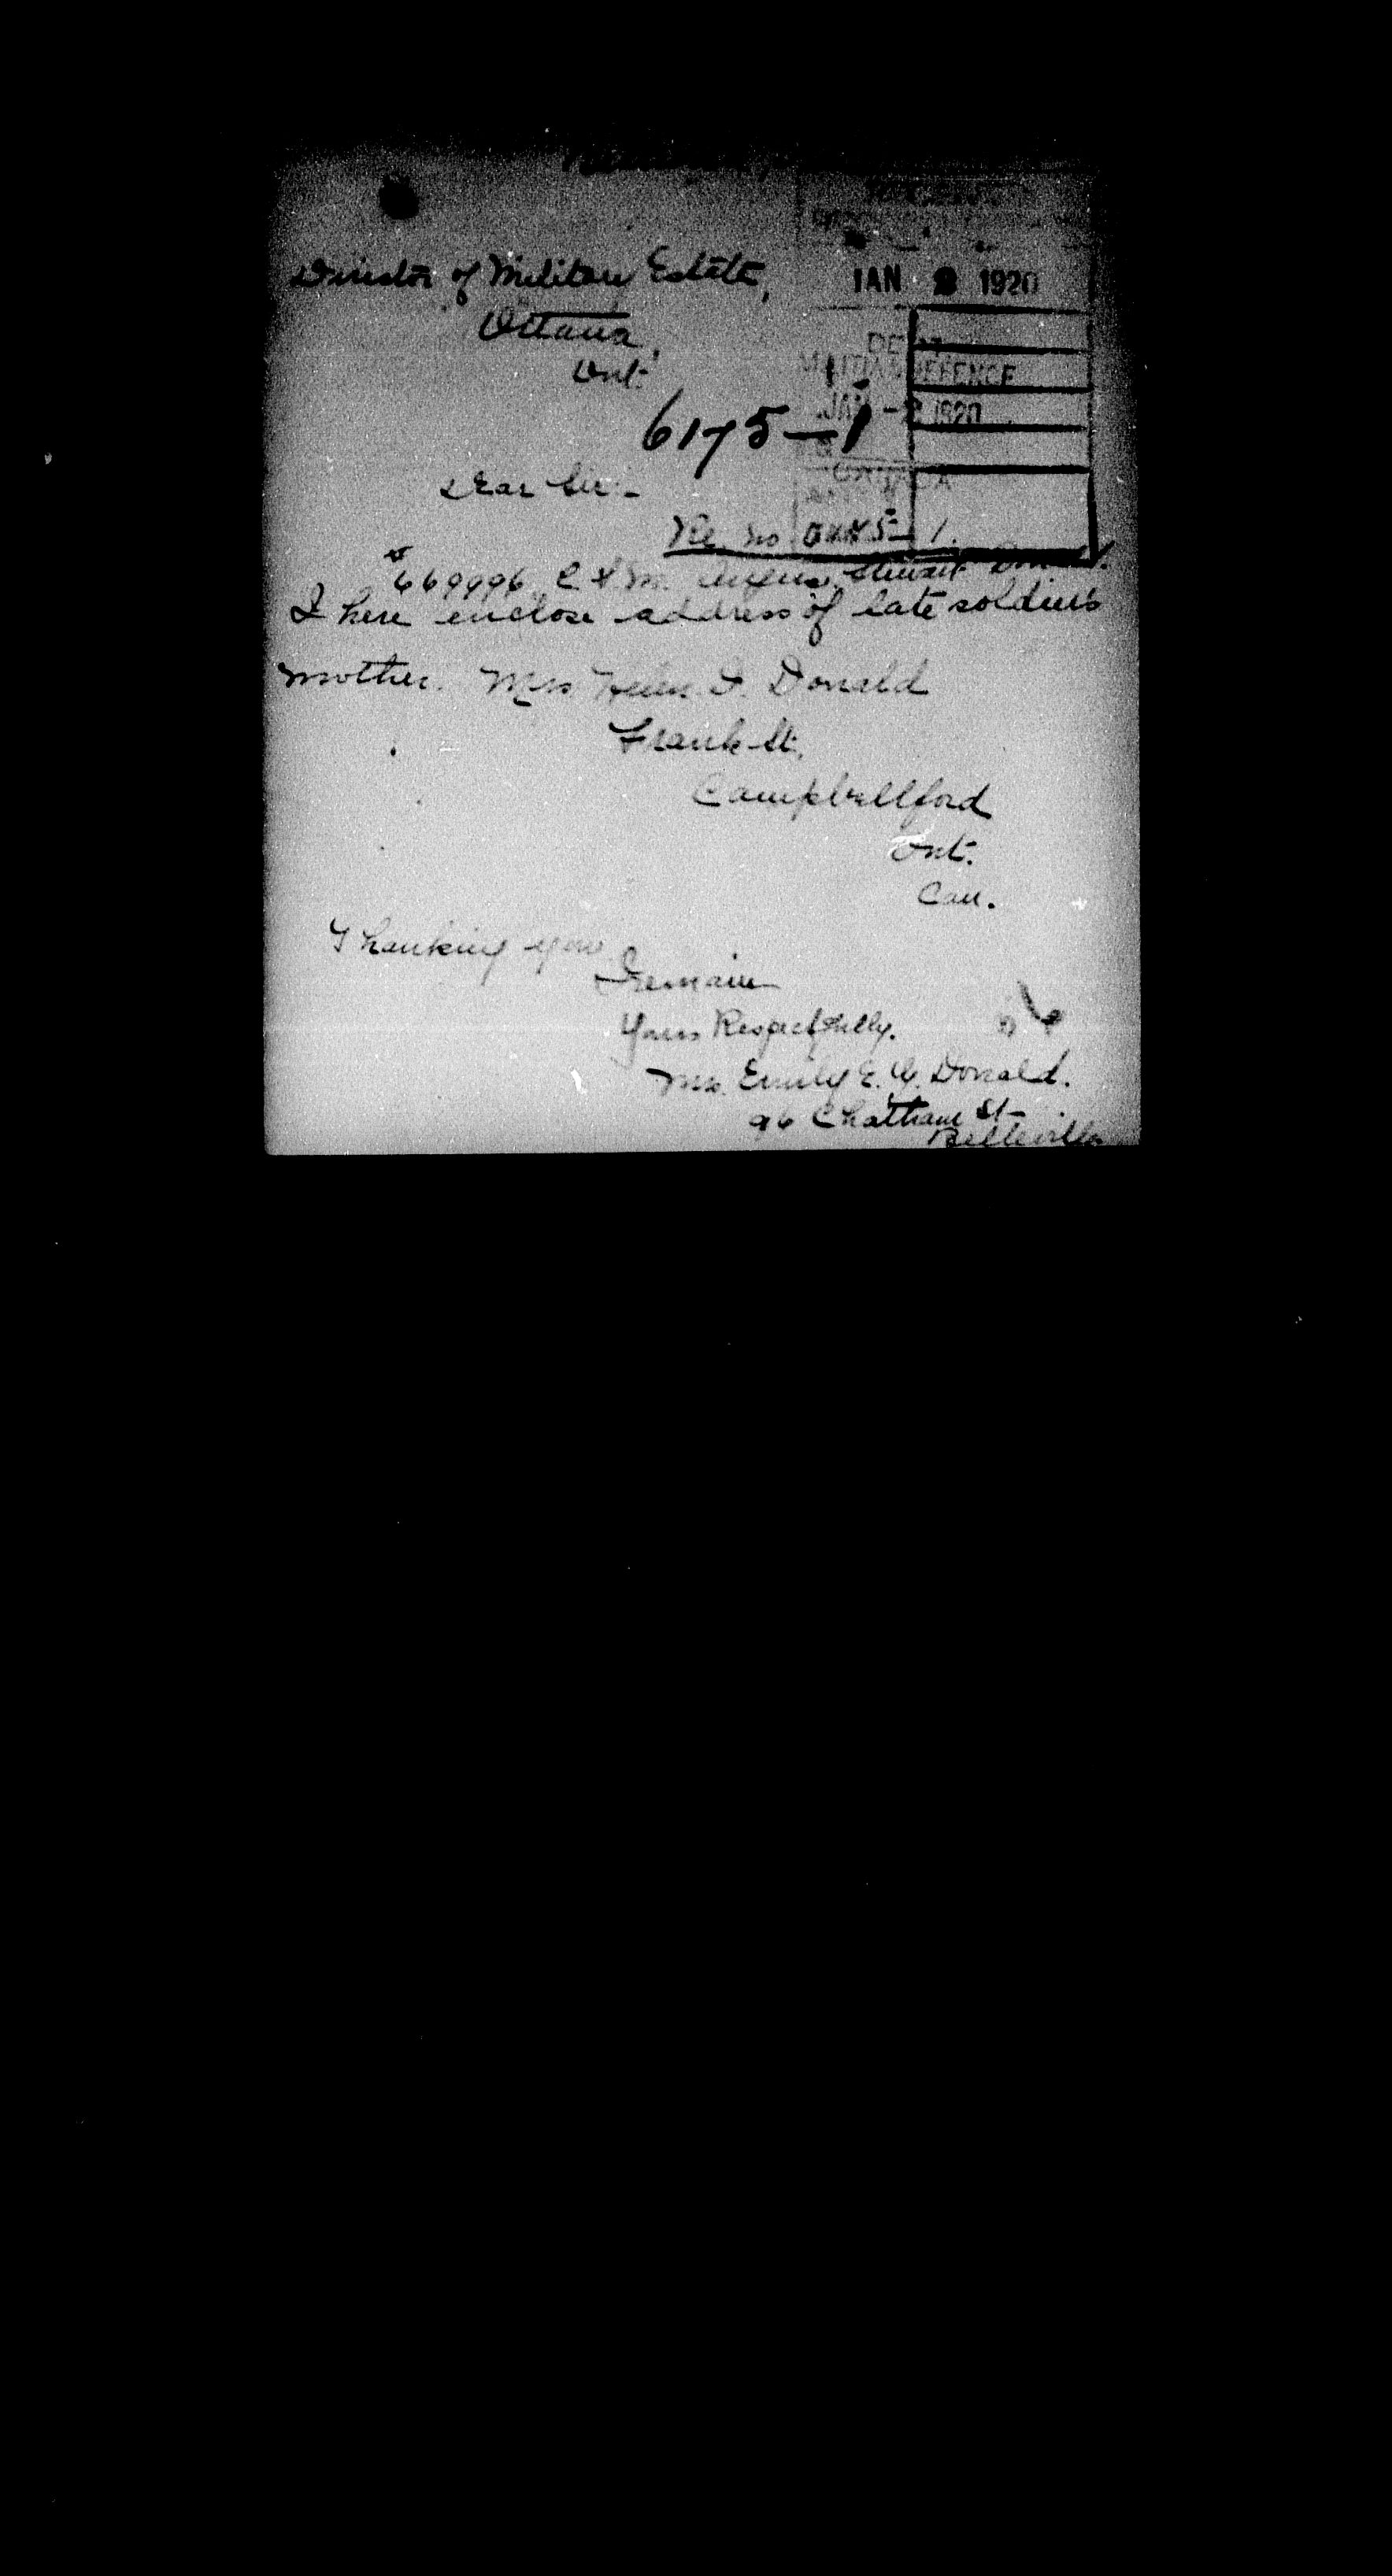 Director of Military Estate,
JAN 1920
Ottawa,
Ont.
DEPT
MILITIA & DEFENCE
JAN - 2 1920
CANADA
6175-1
Dear Sir:-
Re. No 5-1.
C.S.M. Angus Stewart Donald.
I here enclose address of late soldier's
mother. Mrs Helen Donald
Frank St.,
Campbellford
Ont.
Can.
Thanking you
I remain
Yours Respectfully.
Mrs. Emily E. Donald.
96 Chatham St-
Belleville